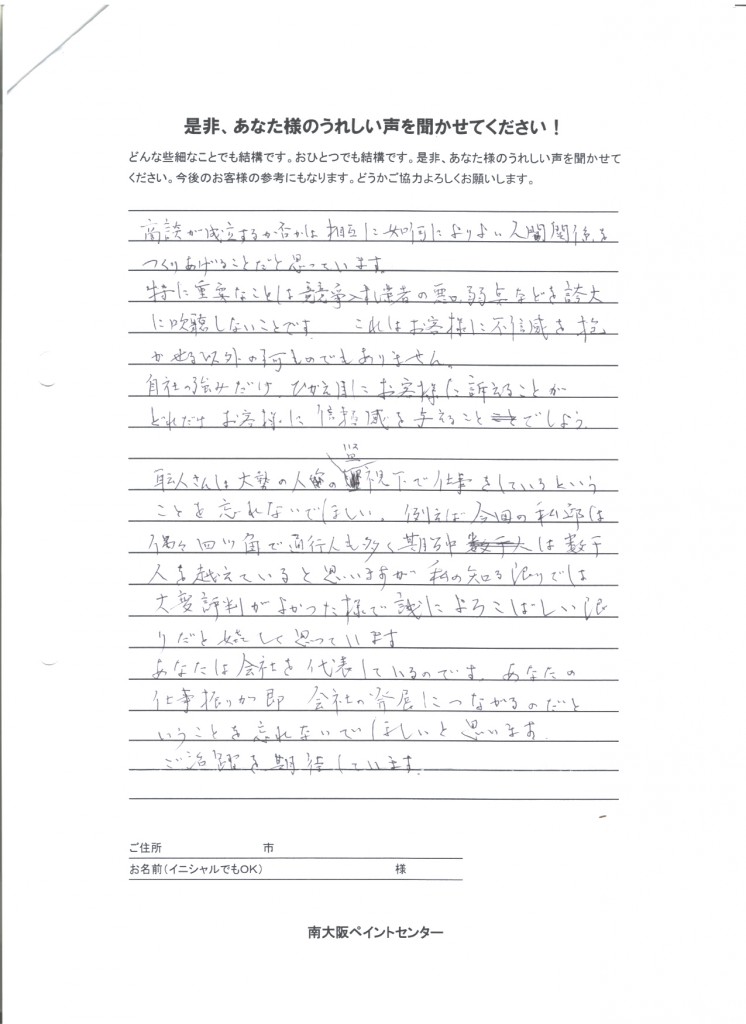 是非、あなた様のうれしい声を聞かせてください！
どんな些細なことでも結構です。おひとつでも結構です。是非、あなた様のうれしい声を聞かせて
ください。今後のお客様の参考にもなります。どうかご協力よろしくお願いします。
商談が成立するか否かは相互に如何によりよい人間関係を
つくりあげることだと思っています。
特に重要なことは競争入札業者の悪口、弱点などを誇大
に吹聴しないことです これはお客様に不信感を抱
かせる以外の何ものでもありません。
自社の強みだけ、ひかえ目にお客様に訴えることが
どれだけお客様に信頼感を与えることでしょう。
職人さんは大勢の人の監視下で仕事をしているという
ことを忘れないでほしい。例えば今回の私邸は
偶々四ツ角で通行人も多く期間中は数千
人を越えていると思いますが私の知る限りでは
大変評判がよかった様で誠によろこばしい限
りだと嬉しく思っています
あなたは会社を代表しているのです。あなたの
仕事振りが即 会社の発展につながるのだと
いうことを忘れないでほしいと思います。
ご活躍を期待しています。
ご住所 市
お名前（イニシャルでもOK） 様
南大阪ペイントセンター